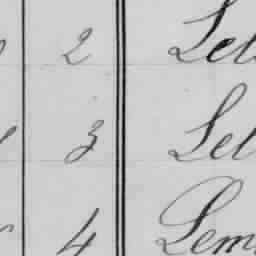 2 Leb
3 Leb
4 Lem